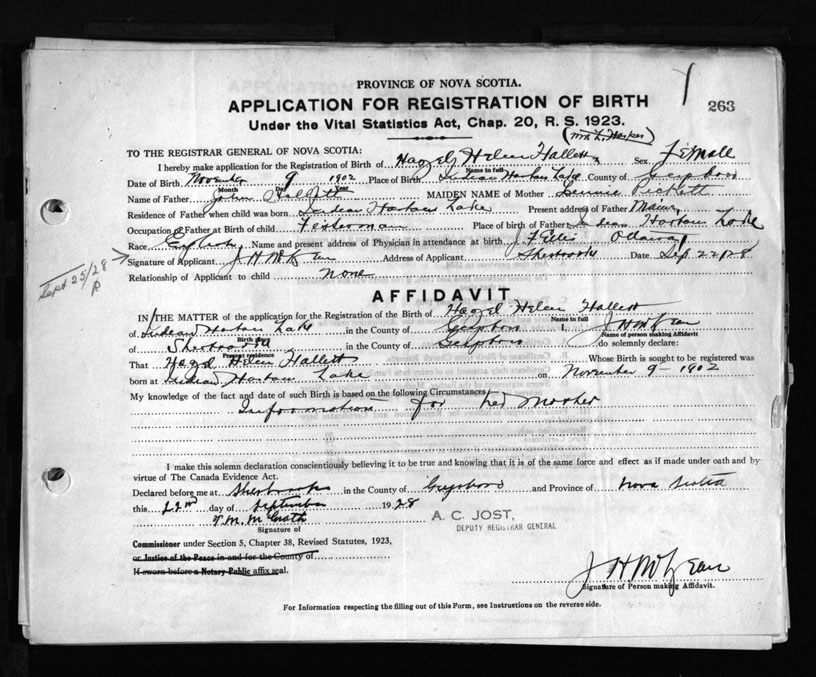 PROVINCE OF NOVA SCOTIA.
APPLICATION FOR REGISTRATION OF BIRTH
263
Under the Vital Statistics Act, Chap. 20, R. S. 1923.
(Mrs L. Harper)
TO THE REGISTRAR GENERAL OF NOVA SCOTIA:
I hereby make application for the Registration of Birth of Hazel Helen Hallett Sex Female
Name in full
Date of Birth November 9 1902 Place of Birth Indian Harbor Lake County of
Month Day Year
Name of Father John Hallett MAIDEN NAME of Mother
Residence of Father when child was born Indian Harbor Lake Present address of Father
Occupation of Father at Birth of child Fisherman Place of birth of Father Indian Harbor Lake
Race English Name and present address of Physician in attendance at birth J F Ellis Ottawa
Signature of Applicant J H McLean Address of Applicant Sherbrooke Date Sep 22/28
Sept 25/28
Relationship of Applicant to child None
AFFIDAVIT
IN THE MATTER of the application for the Registration of the Birth of Hazel Helen Hallett
Name in full
of Indian Harbor Lake in the County of I, J H McLean
Birth place Name of person making Affidavit
of Sherbrooke in the County of do solemnly declare:
Present residence
That Hazel Helen Hallett Whose Birth is sought to be registered was
born at Indian Harbor Lake on November 9 - 1902
My knowledge of the fact and date of such Birth is based on the following Circumstances
Information for her Mother
I make this solemn declaration conscientiously believing it to be true and knowing that it is of the same force and effect as if made under oath and by
virtue of The Canada Evidence Act.
Declared before me at Sherbrooke in the County of Guysboro and Province of Nova Scotia
this 22nd day of September 1928
T. M. McGrath
A. C. JOST,
DEPUTY REGISTRAR GENERAL
Signature of
Commissioner under Section 5, Chapter 38, Revised Statutes, 1923,
or Justice of the Peace in and for the County of
If sworn before a Notary Public affix seal.
J H McLean
Signature of Person making Affidavit.
For Information respecting the filling out of this Form, see Instructions on the reverse side.